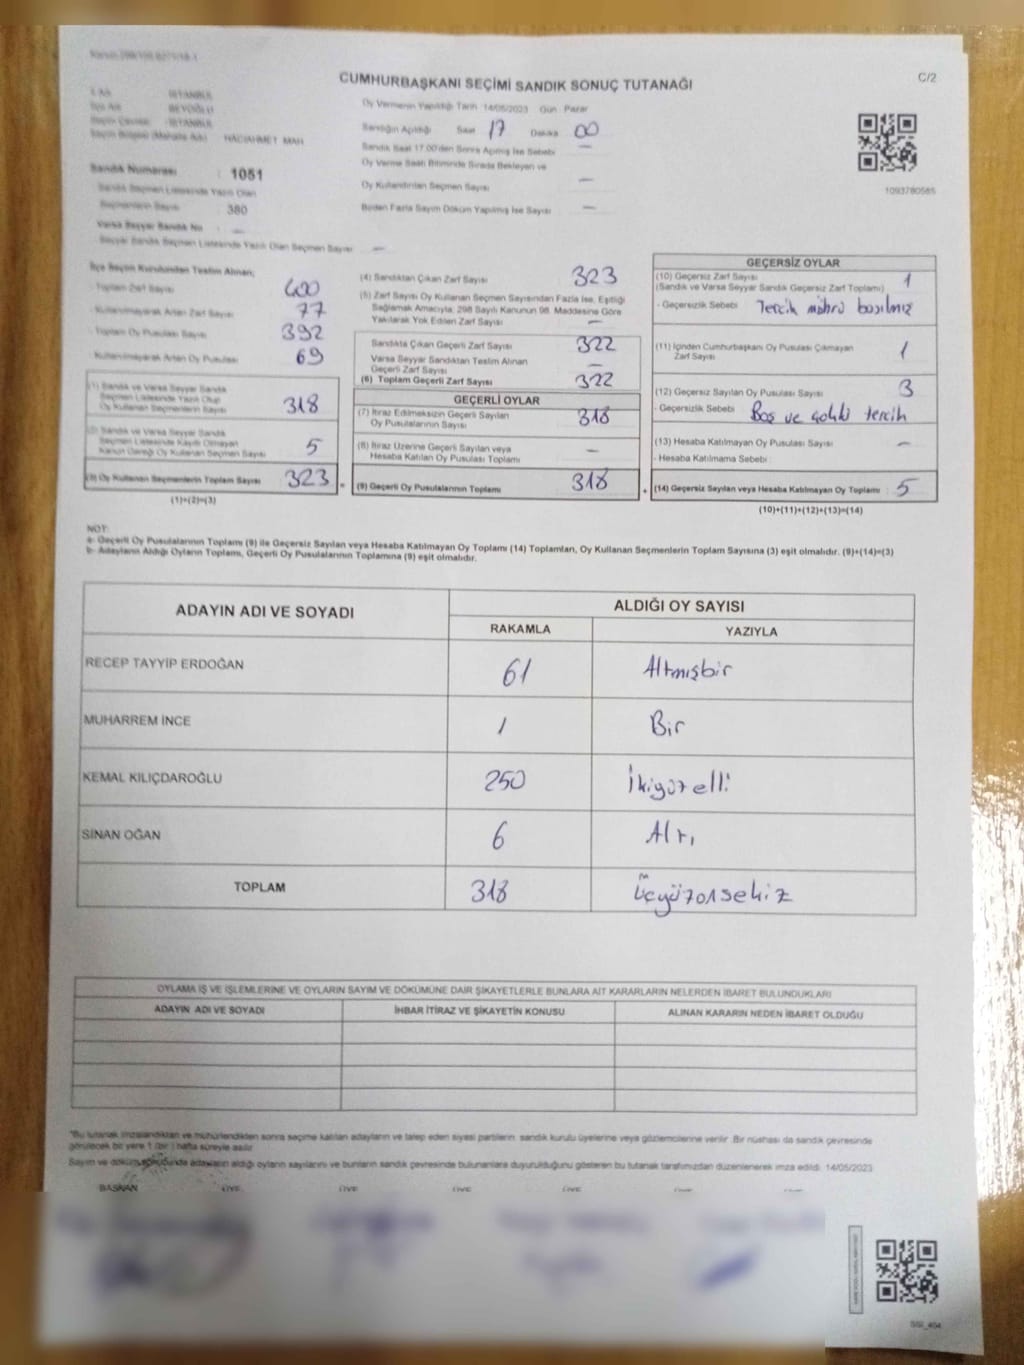 C/2
CUMHURBAŞKANI SEÇİMİ SANDIK SONUÇ TUTANAĞI
İli Adı : İSTANBUL
İlçe Adı : BEYOĞLU
Seçim Çevresi : İSTANBUL
Seçim Bölgesi (Mahalle Adı) : HACIAHMET MAH
Sandık Numarası : 1051
Sandık Seçmen Listesinde Yazılı Olan
Seçmenlerin Sayısı : 380
Varsa Seyyar Sandık No : —
Seyyar Sandık Seçmen Listesinde Yazılı Olan Seçmen Sayısı —
Oy Vermenin Yapıldığı Tarih 14/05/2023 Gün Pazar
Sandığın Açıldığı Saat 17 Dakika 00
Sandık Saat 17.00'den Sonra Açılmış İse Sebebi —
Oy Verme Saati Bitiminde Sırada Bekleyen ve
Oy Kullandırılan Seçmen Sayısı —
Birden Fazla Sayım Döküm Yapılmış İse Sayısı —
1093780585
İlçe Seçim Kurulundan Teslim Alınan;
- Toplam Zarf Sayısı 400
- Kullanılmayarak Artan Zarf Sayısı 77
- Toplam Oy Pusulası Sayısı 392
- Kullanılmayarak Artan Oy Pusulası 69
(1) Sandık ve Varsa Seyyar Sandık
Seçmen Listesinde Yazılı Olup
Oy Kullanan Seçmenlerin Sayısı 318
(2) Sandık ve Varsa Seyyar Sandık
Seçmen Listesinde Kayıtlı Olmayan
Kanun Gereği Oy Kullanan Seçmen Sayısı 5
(3) Oy Kullanan Seçmenlerin Toplam Sayısı 323
(1)+(2)=(3)
(4) Sandıktan Çıkan Zarf Sayısı 323
(5) Zarf Sayısı Oy Kullanan Seçmen Sayısından Fazla İse, Eşitliği
Sağlamak Amacıyla; 298 Sayılı Kanunun 98. Maddesine Göre
Yakılarak Yok Edilen Zarf Sayısı —
Sandıkta Çıkan Geçerli Zarf Sayısı 322
Varsa Seyyar Sandıktan Teslim Alınan
Geçerli Zarf Sayısı —
(6) Toplam Geçerli Zarf Sayısı 322
GEÇERLİ OYLAR
(7) İtiraz Edilmeksizin Geçerli Sayılan
Oy Pusulalarının Sayısı 318
(8) İtiraz Üzerine Geçerli Sayılan veya
Hesaba Katılan Oy Pusulası Toplamı —
(9) Geçerli Oy Pusulalarının Toplamı 318
GEÇERSİZ OYLAR
(10) Geçersiz Zarf Sayısı 1
(Sandık ve Varsa Seyyar Sandık Geçersiz Zarf Toplamı)
- Geçersizlik Sebebi Tercih mührü basılmış
(11) İçinden Cumhurbaşkanı Oy Pusulası Çıkmayan
Zarf Sayısı 1
(12) Geçersiz Sayılan Oy Pusulası Sayısı 3
- Geçersizlik Sebebi Boş ve çoklu tercih
(13) Hesaba Katılmayan Oy Pusulası Sayısı —
- Hesaba Katılmama Sebebi :
(14) Geçersiz Sayılan veya Hesaba Katılmayan Oy Toplamı : 5
(10)+(11)+(12)+(13)=(14)
NOT:
a- Geçerli Oy Pusulalarının Toplamı (9) ile Geçersiz Sayılan veya Hesaba Katılmayan Oy Toplamı (14) Toplamları, Oy Kullanan Seçmenlerin Toplam Sayısına (3) eşit olmalıdır. (9)+(14)=(3)
b- Adayların Aldığı Oyların Toplamı, Geçerli Oy Pusulalarının Toplamına (9) eşit olmalıdır.
ADAYIN ADI VE SOYADI ALDIĞI OY SAYISI
RAKAMLA YAZIYLA
RECEP TAYYİP ERDOĞAN 61 Altmışbir
MUHARREM İNCE 1 Bir
KEMAL KILIÇDAROĞLU 250 İkiyüzelli
SİNAN OĞAN 6 Altı
TOPLAM 318 Üçyüzonsekiz
OYLAMA İŞ VE İŞLEMLERİNE VE OYLARIN SAYIM VE DÖKÜMÜNE DAİR ŞİKAYETLERLE BUNLARA AİT KARARLARIN NELERDEN İBARET BULUNDUKLARI
ADAYIN ADI VE SOYADI İHBAR İTİRAZ VE ŞİKAYETİN KONUSU ALINAN KARARIN NEDEN İBARET OLDUĞU
*Bu tutanak imzalandıktan ve mühürlendikten sonra seçime katılan adayların ve talep eden siyasi partilerin sandık kurulu üyelerine veya gözlemcilerine verilir. Bir nüshası da sandık çevresinde
görülecek bir yere 1 (bir) hafta süreyle asılır.
Sayım ve dökümü sonucunda adayların aldığı oyların sayılarını ve bunların sandık çevresinde bulunanlara duyurulduğunu gösteren bu tutanak tarafımızdan düzenlenerek imza edildi. 14/05/2023
BAŞKAN ÜYE ÜYE ÜYE ÜYE ÜYE ÜYE